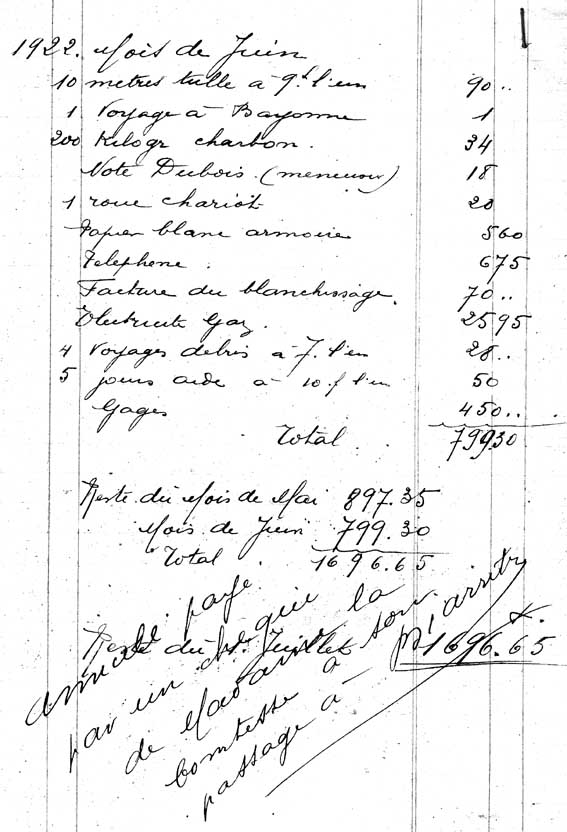 1922. Mois de Juin
10 metres tulle a 9f l'un 90..
1 Voyage a Bayonne 1
200 Kilogr charbon. 34
Note Dubois. (menuisier) 18
1 roue chariot 20
Papier blanc armoire 560
Telephone. 675
Facture du blanchissage. 70..
Electricite Gaz. 2595
4 Voyages debris a 7. l'un 28..
5 jours aide a 10.f l'un 50
Gages 450..
Total 79930
Reste du Mois de Mai 897.35
Mois de Juin 799.30
Total 1696.65
Reste du 1. Juillet 1696.65
annulé payé
par un cheque
de Madame la
Comtesse a son
passage à